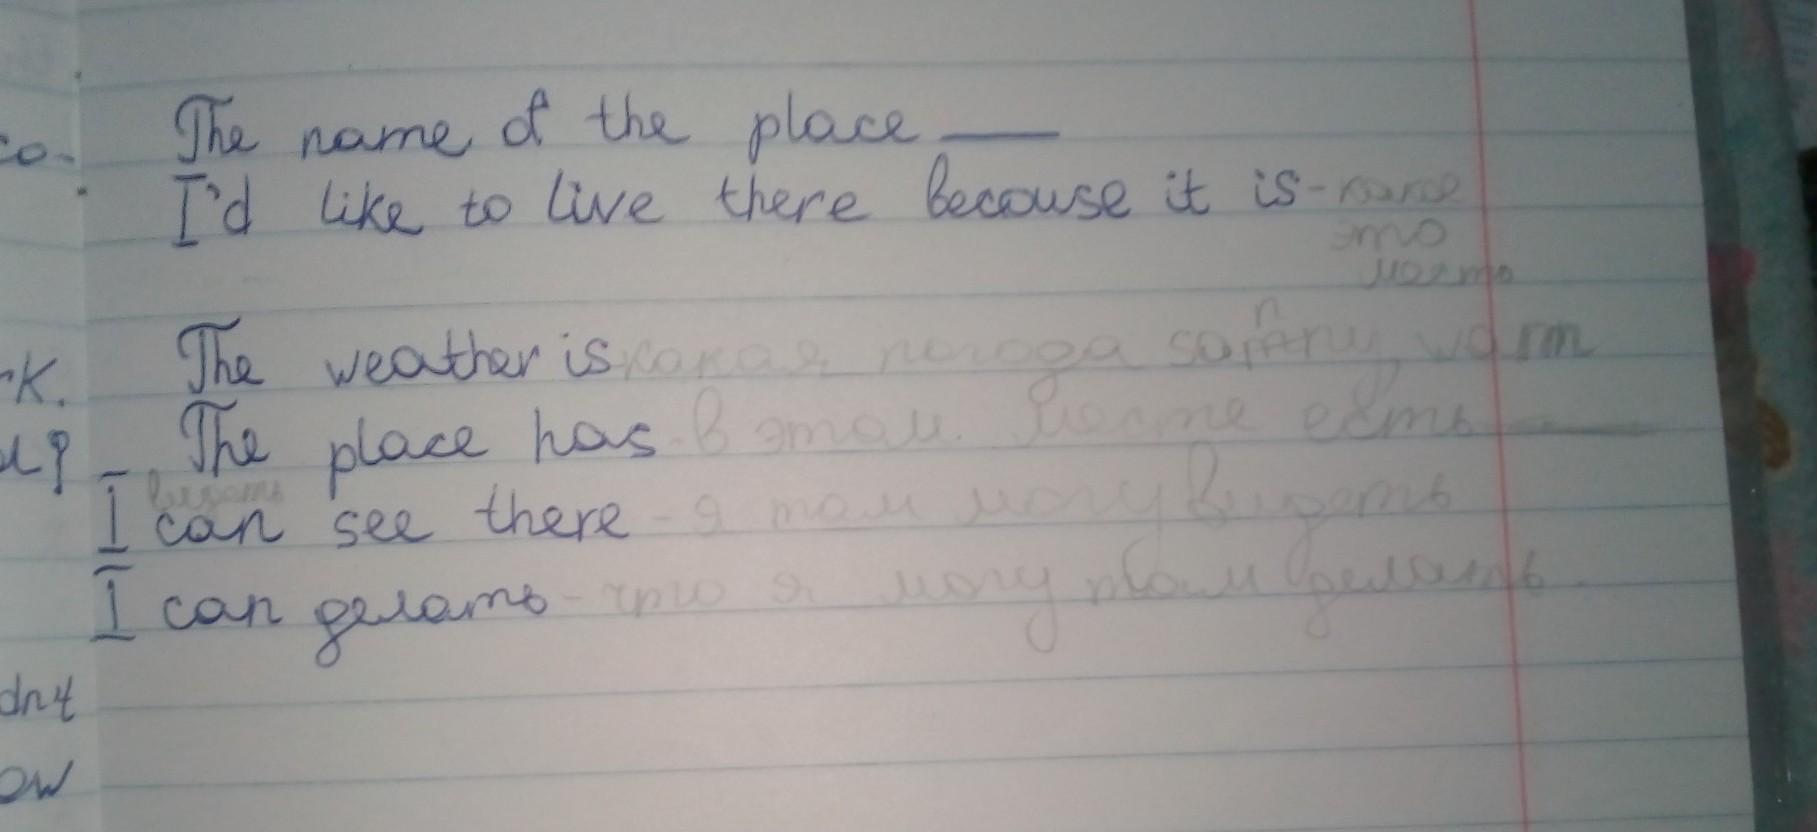 со-
The name of the place —
I'd like to live there because it is - какое
это
место
The weather is какая погода sanny, warm
rk.
The place has - в этом месте есть —
и?
видеть
I can see there - я там могу видеть
I can делать - что я могу там делать
dn't
ow